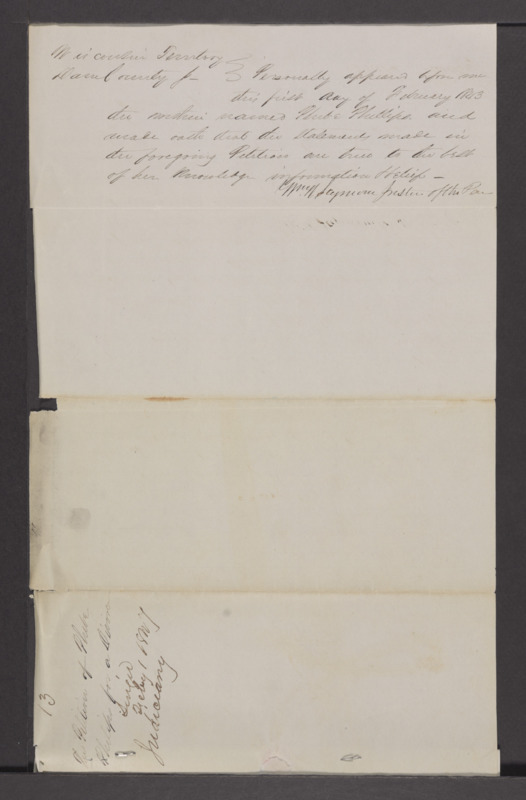 Wisconsin Territory
Dane County ss Personally appeared before me
this first day of February 1843
the within named Phebe Phillips and
made oath that the statements made in
the foregoing Petition are true to the best
of her knowledge information & belief –
Wm N Seymour Justice of the Peace
13
Petition of Phebe
Phillips for a Divorce
Feby 1, 1843
Judiciary